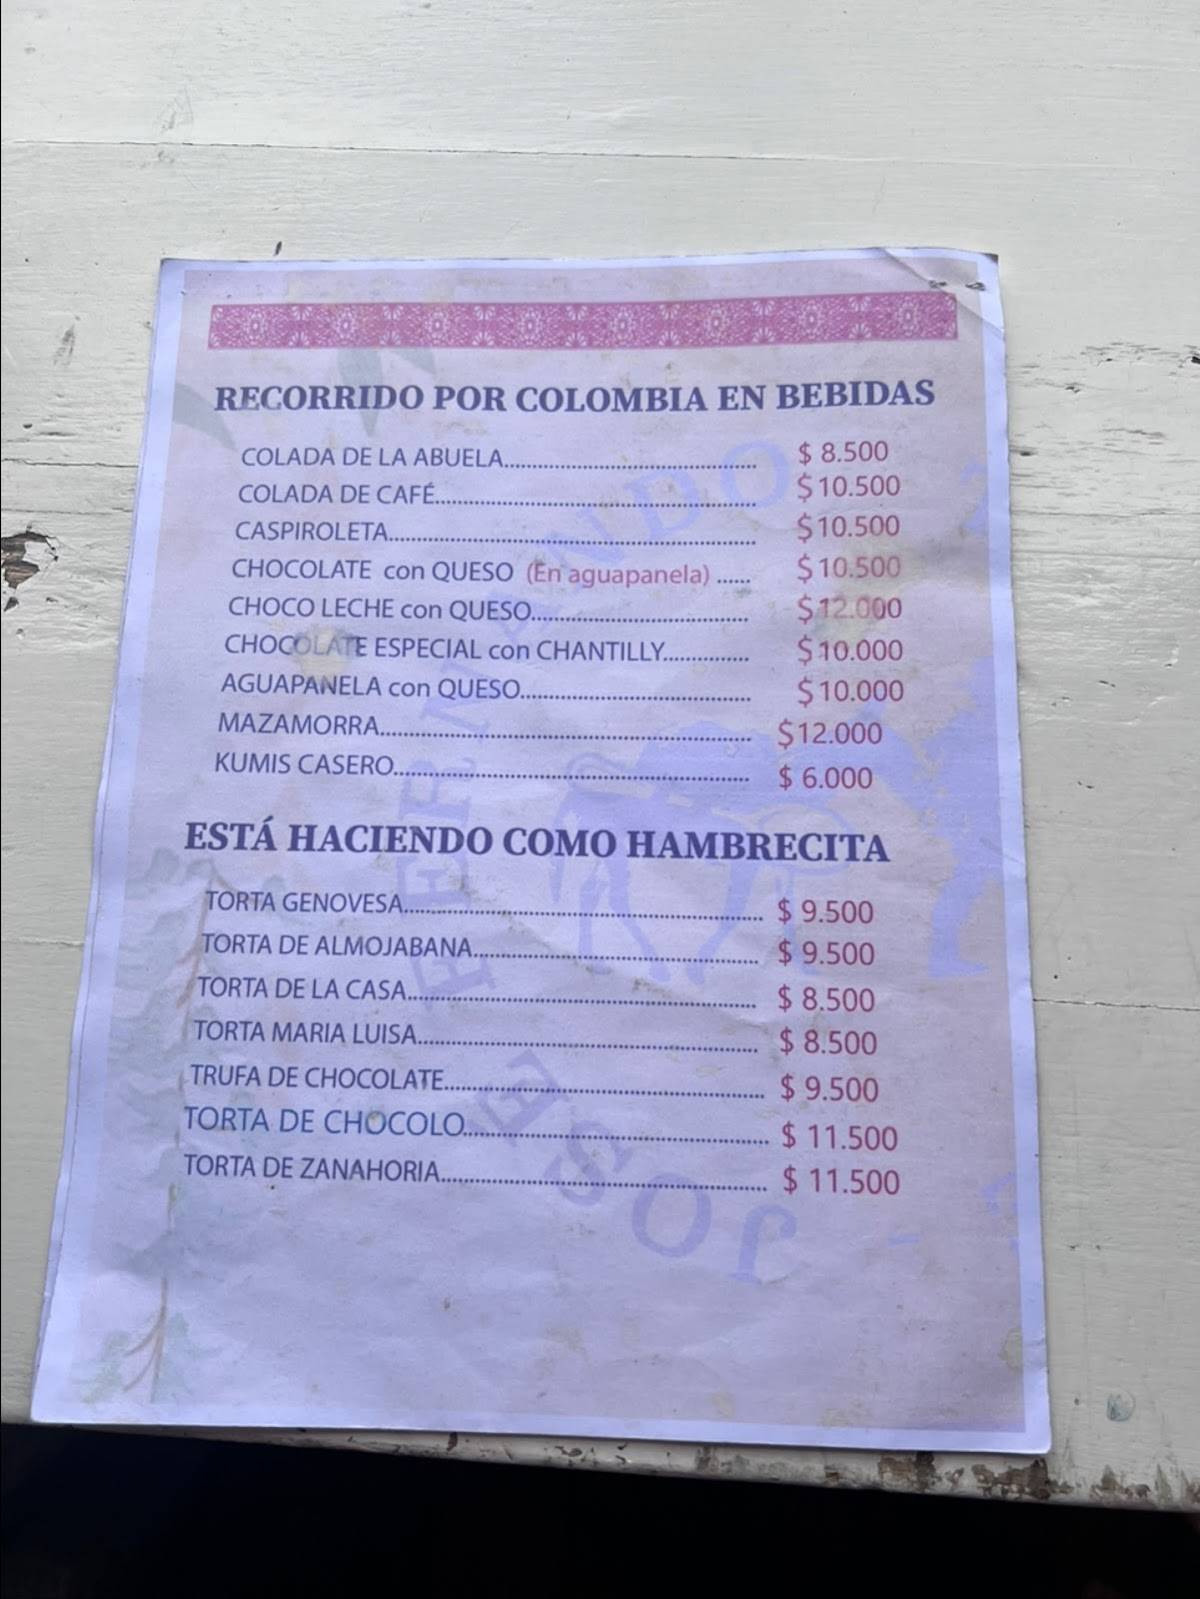 RECORRIDO POR COLOMBIA EN BEBIDAS
COLADA DE LA ABUELA........ $ 8.500
COLADA DE CAFÉ........ $10.500
CASPIROLETA........ $10.500
CHOCOLATE con QUESO (En aguapanela) ...... $10.500
CHOCO LECHE con QUESO........ $12.000
CHOCOLATE ESPECIAL con CHANTILLY........ $10.000
AGUAPANELA con QUESO........ $10.000
MAZAMORRA........ $12.000
KUMIS CASERO........ $ 6.000
ESTÁ HACIENDO COMO HAMBRECITA
TORTA GENOVESA........ $ 9.500
TORTA DE ALMOJABANA........ $ 9.500
TORTA DE LA CASA........ $ 8.500
TORTA MARIA LUISA........ $ 8.500
TRUFA DE CHOCOLATE........ $ 9.500
TORTA DE CHOCOLO........ $ 11.500
TORTA DE ZANAHORIA........ $ 11.500
JOSE FERNANDO